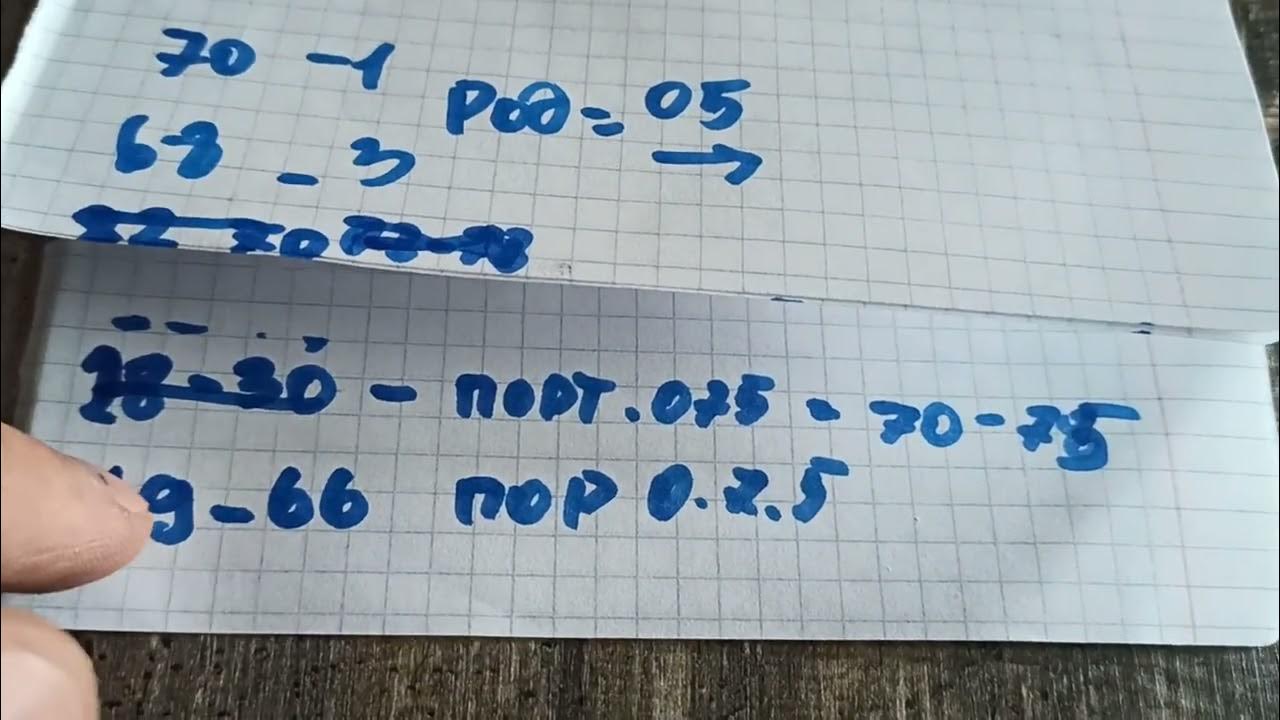 70 -1
Род = 05
68 - 3
- порт. 075 - 70-75
9-66 пор 0.7.5